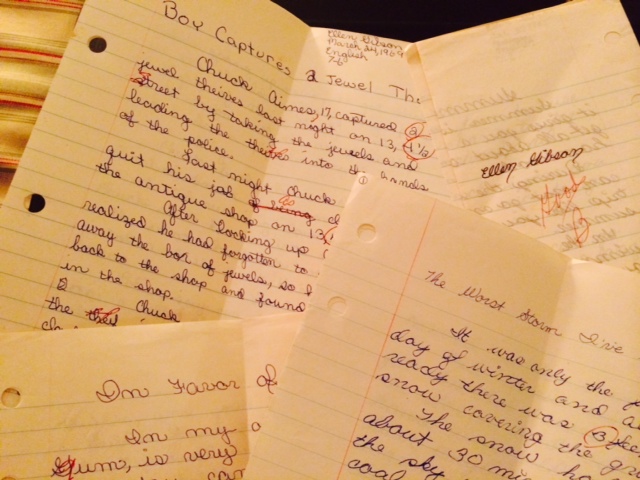 Boy Captures 2 Jewel
Ellen Gibson
March 24, 1969
English
7-6
Chuck Aimes, 17, captured 2
jewel theives last night on 13, 4 1/2
Street by taking the jewels and
leading the theives into the hands
of the police.
Last night Chuck
quit his job of being
the antique shop on 13,
After locking up
realized he had forgotten to
away the box of jewels, so
back to the shop and found
in the shop.
2 Chuck
the they
Ellen Gibson
B
1
The Worst Storm I've
It was only the
day of winter and
ready there was 3
snow covering the
The snow
about 30
the sky
coal
In Favor of
In my
Gum, is very